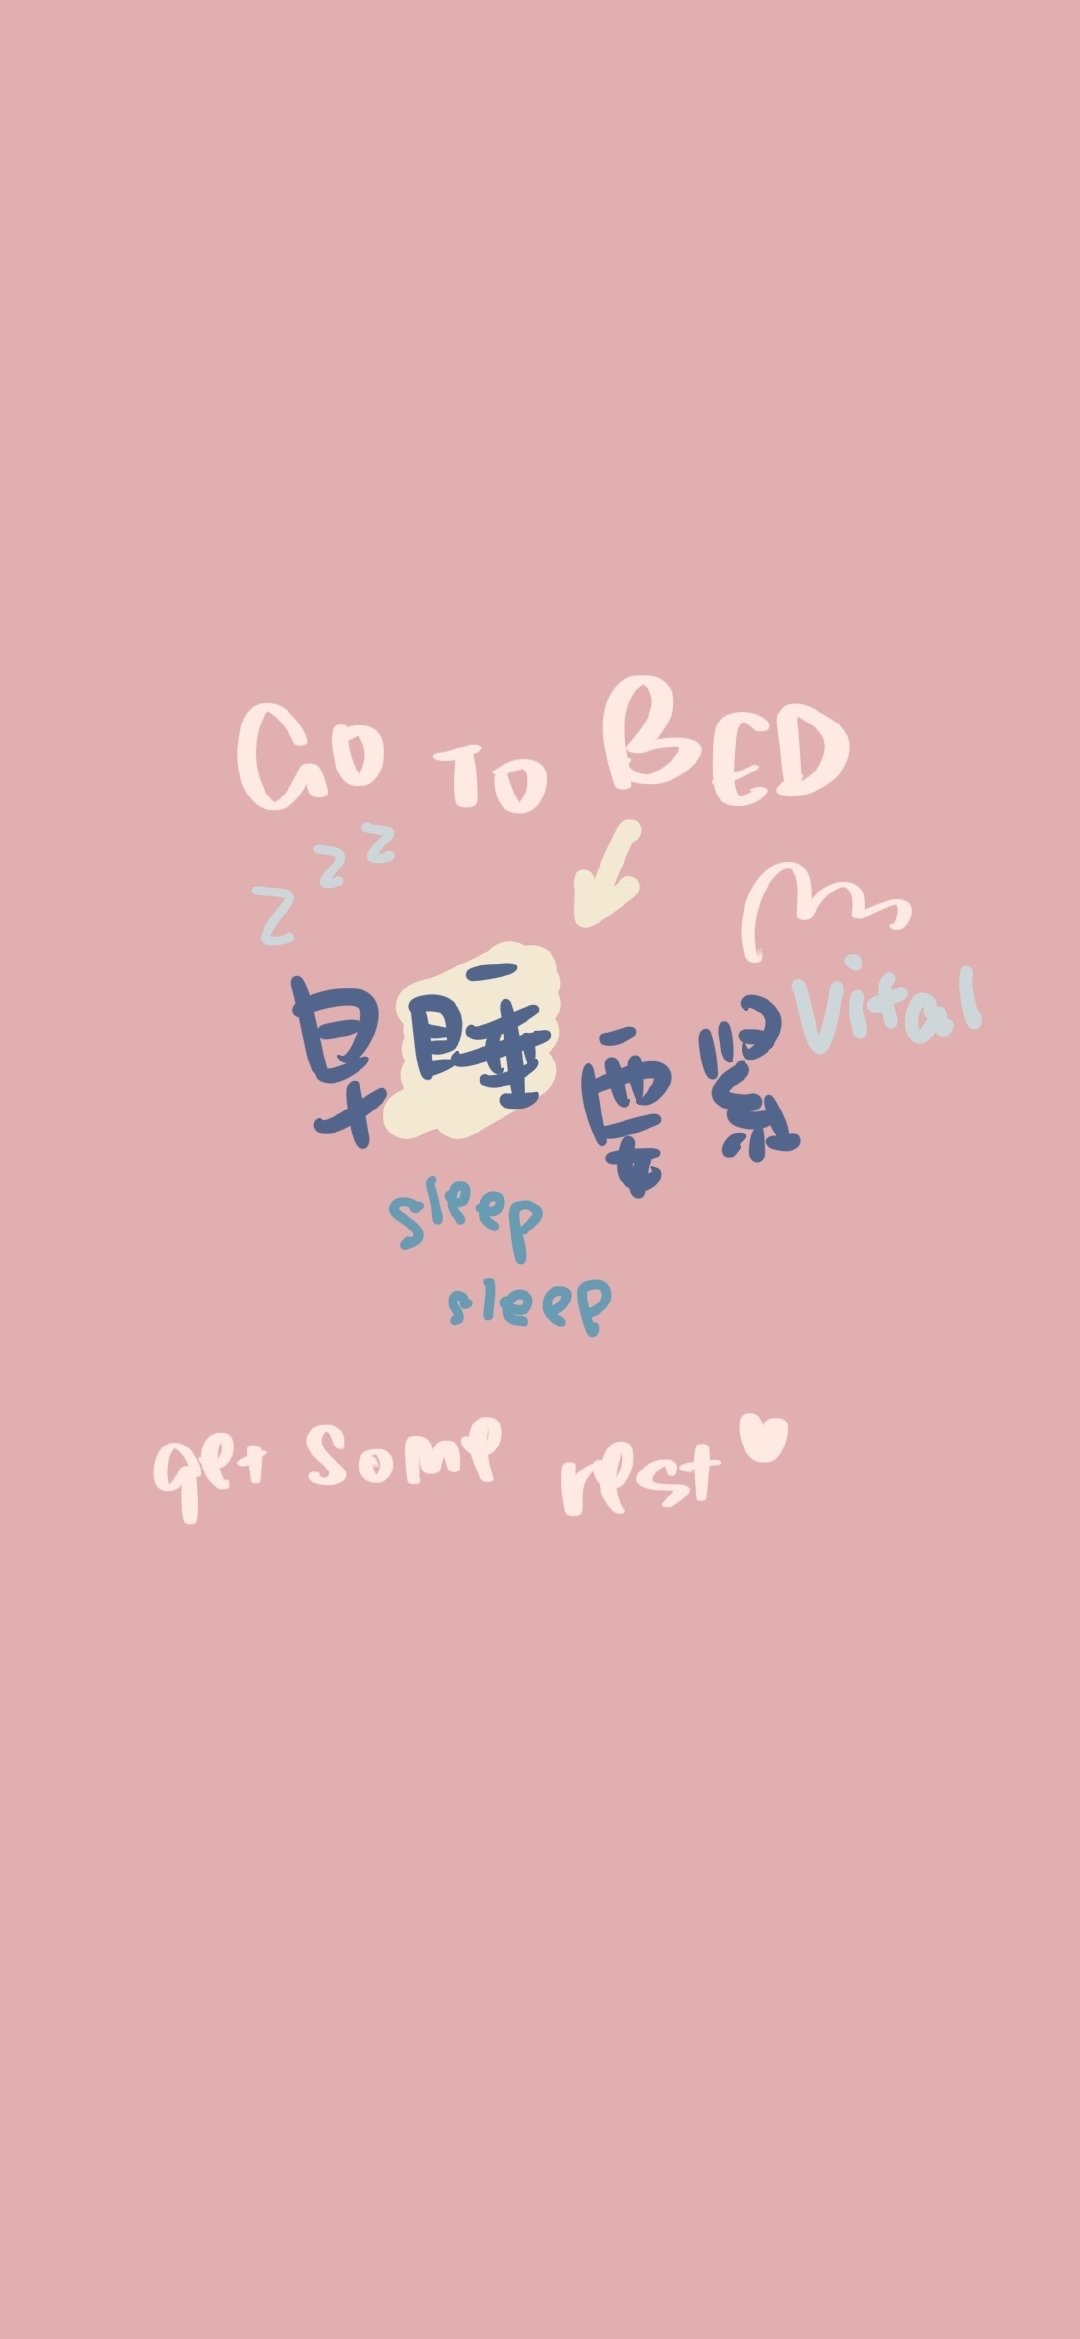 GO TO BED
z z z
早睡要紧
Vital
sleep
sleep
get some rest